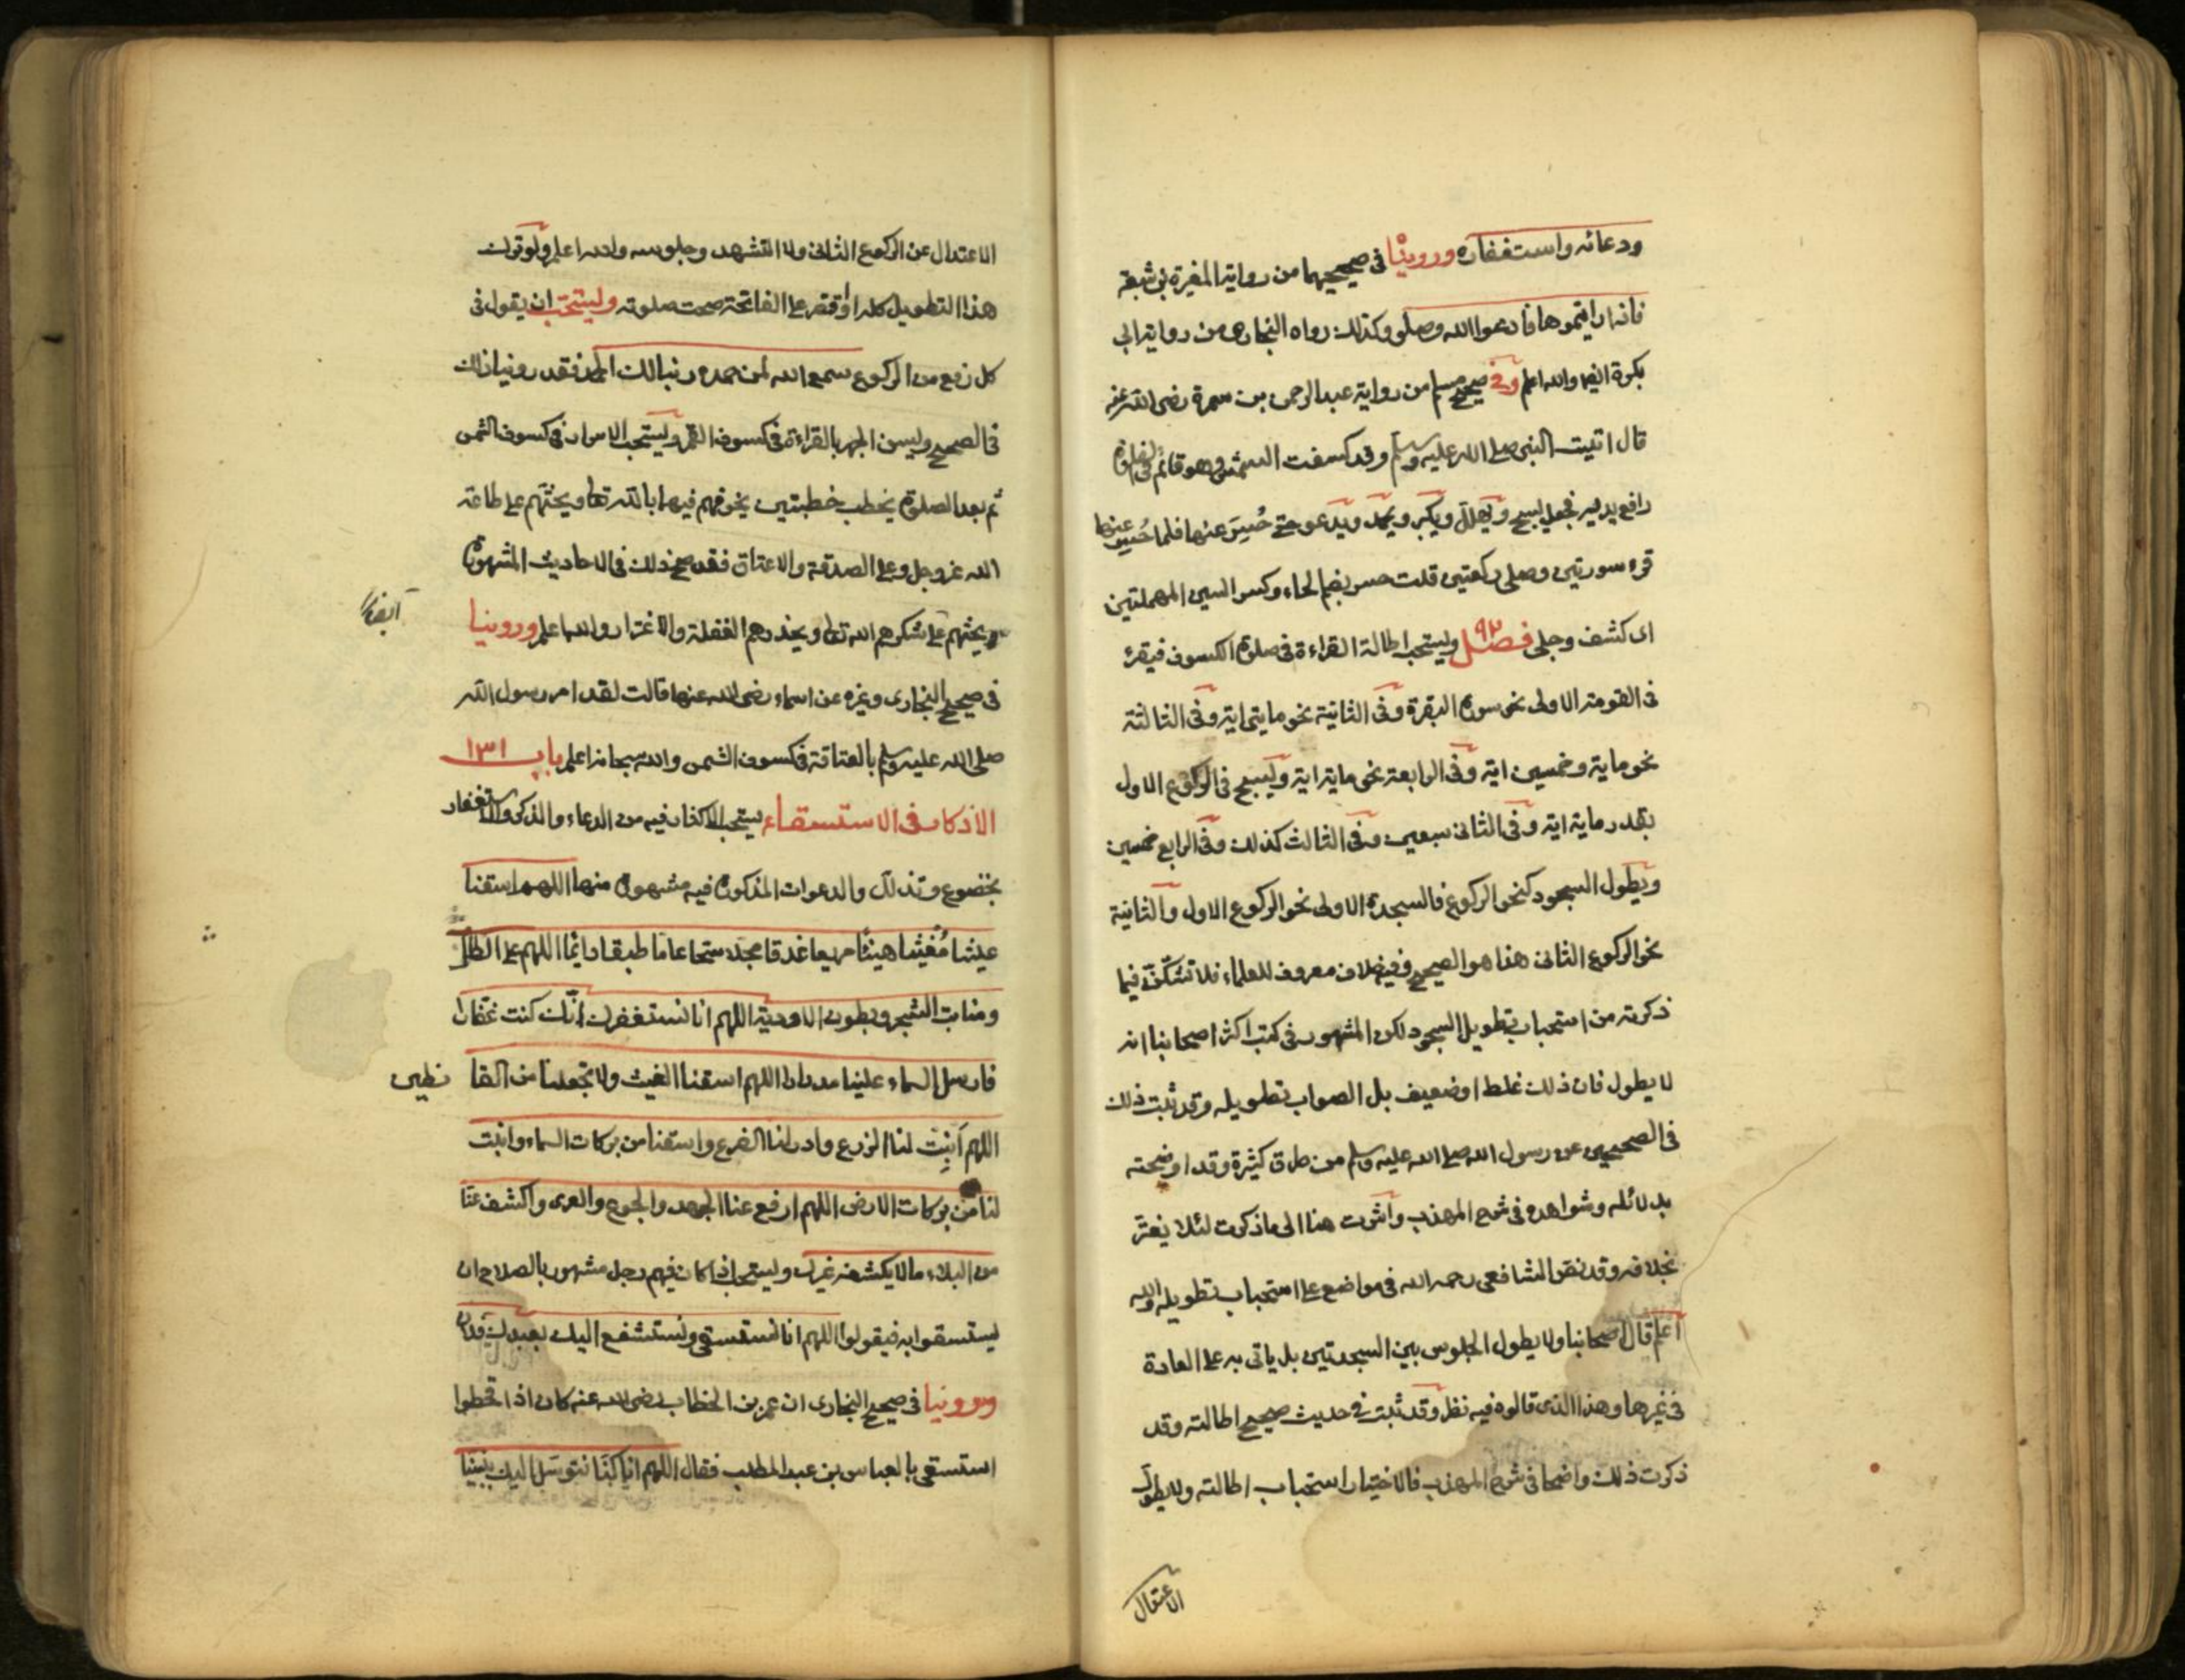 ودعائه واستغفاره وروينا في صحيحيهما من رواية المغيرة بن شعبة
فاذا رايتموها فادعوا الله وصلو وكذلك رواه البخاري من رواية ابي
بكرة ايضا والله اعلم وفي صحيح مسلم من رواية عبد الرحمن بن سمرة رضى الله عنه
قال اتيت النبى صلى الله عليه وسلم وقد كسفت الشمس وهو قائم في الصلوة
رافع يديه فجعل يسبح ويهلل ويكبر ويحمد ويدعو حتى حُسِرَ عنها فلما حُسِر عنها
قرء سورتين وصلى ركعتين قلت حسر بضم الحاء وكسر السين المهملتين
اى كشف وجلى فصل ٩٢ ويستحب اطالة القراءة في صلوة الكسوف فيقرء
في القومة الاولى نحو سورة البقرة وفي الثانية نحو مايتى اية وفي الثالثة
نحو ماية وخمسين اية وفي الرابعة نحو ماية اية ويسبح في الركوع الاول
بقدر ماية اية وفي الثانى سبعين وفي الثالث كذلك وفي الرابع خمسين
ويطول السجود كنحو الركوع فالسجدة الاولى نحو الركوع الاول والثانية
نحو الركوع الثانى هذا هو الصحيح وفيه خلاف معروف للعلماء فلا تشكن فيما
ذكرته من استحباب تطويل السجود لكن المشهور في كتب اكثر اصحابنا انه
لا يطول فان ذلك غلط او ضعيف بل الصواب تطويله وقد ثبت ذلك
في الصحيحين عن رسول الله صلى الله عليه وسلم من طرق كثيرة وقد اوضحته
بدلائله وشواهده في شرح المهذب واشرت هنا الى ما ذكرت لئلا يغتر
بخلافه وقد نص الشافعى رحمه الله في مواضع على استحباب تطويله والله
اعلم قال اصحابنا ولا يطول الجلوس بين السجدتين بل ياتى به على العادة
في غيرها وهذا الذى قالوه فيه نظر وقد ثبت في حديث صحيح اطالته وقد
ذكرت ذلك واضحا في شرح المهذب فالاختيار استحباب اطالته ولا يطول
الاعتدال
الاعتدال عن الركوع الثانى ولا التشهد وجلوسه والله اعلم ولو ترك
هذا التطويل كله او اقتصر على الفاتحة صحت صلوته ويستحب ان يقول في
كل رفع من الركوع سمع الله لمن حمده ربنا لك الحمد فقد روينا ذلك
في الصحيح ويسن الجهر بالقراءة في كسوف القمر ويستحب الاسرار في كسوف الشمس
ثم بعد الصلوة يخطب خطبتين يخوفهم فيهما بالله تعا ويحثهم على طاعة
الله عز وجل وعلى الصدقة والاعتاق فقد صح ذلك في الاحاديث المشهورة
ويحثهم على شكرهم الله تعا ويحذرهم الغفلة والاغترار والله اعلم وروينا
ايضا
في صحيح البخارى وغيره عن اسماء رضى الله عنها قالت لقد امر رسول الله
صلى الله عليه وسلم بالعتاقة في كسوف الشمس والله سبحانه اعلم باب ١٣١
الاذكار في الاستسقاء يستحب الاكثار فيه من الدعاء والذكر والاستغفار
بخضوع وتذلل والدعوات المذكورة فيه مشهورة منها اللهم اسقنا
غيثا مُغيثا هنيئا مريعا غدقا مجللا سحا عاما طبقا دايما اللهم على الظراب
ومنابت الشجر وبطون الاودية اللهم انا نستغفرك انك كنت غفارا
فارسل السماء علينا مدرارا اللهم اسقنا الغيث ولا تجعلنا من القا نطين
اللهم اَنبِت لنا الزرع وادر لنا الضرع واسقنا من بركات السماء وانبت
لنا من بركات الارض اللهم ارفع عنا الجهد والجوع والعرى واكشف عنا
من البلاء ما لا يكشفه غيرك ويستحب اذا كان فيهم رجل مشهور بالصلاح ان
يستسقوا به فيقولوا اللهم انا نستسقى ونستشفع اليك بعبدك فلان
وروينا في صحيح البخارى ان عمر بن الخطاب رضى الله عنه كان اذا قحطوا
استسقى بالعباس بن عبد المطلب فقال اللهم انا كنا نتوسل اليك بنبينا